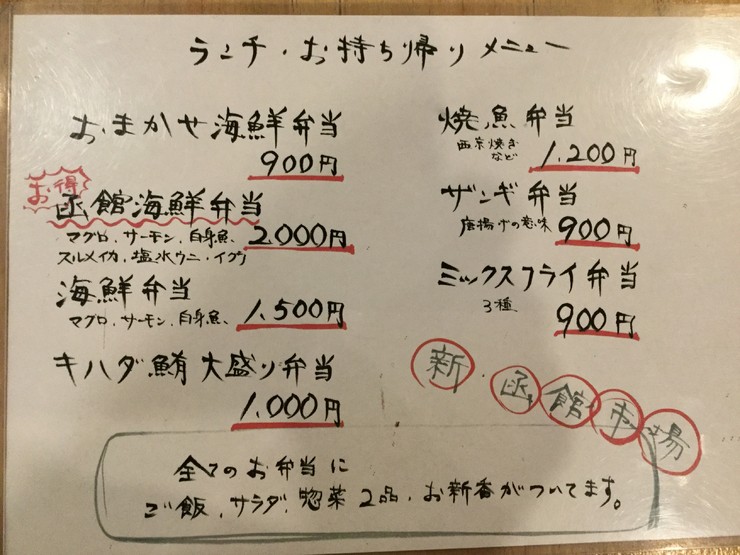 ランチ・お持ち帰りメニュー
おまかせ海鮮弁当
900円
お得
函館海鮮弁当
マグロ、サーモン、白身魚、
2000円
スルメイカ、塩水ウニ・イクラ
海鮮弁当
マグロ、サーモン、白身魚、
1,500円
キハダ鮪大盛り弁当
1,000円
焼魚弁当
西京焼き
など
1,200円
ザンギ弁当
唐揚げの意味
900円
ミックスフライ弁当
3種
900円
新・函館市場
全てのお弁当に
ご飯、サラダ、惣菜2品、お新香がついてます。